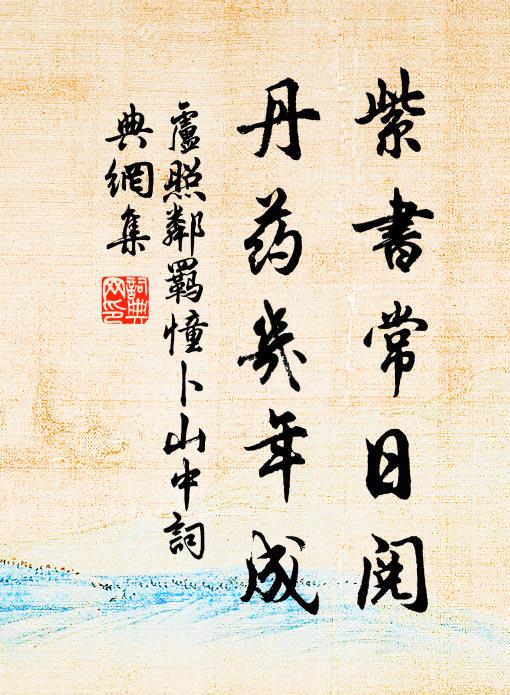 紫書常日閱
丹药幾年成
盧照鄰羁㦏卜山中詞
典網集
詞典
网印